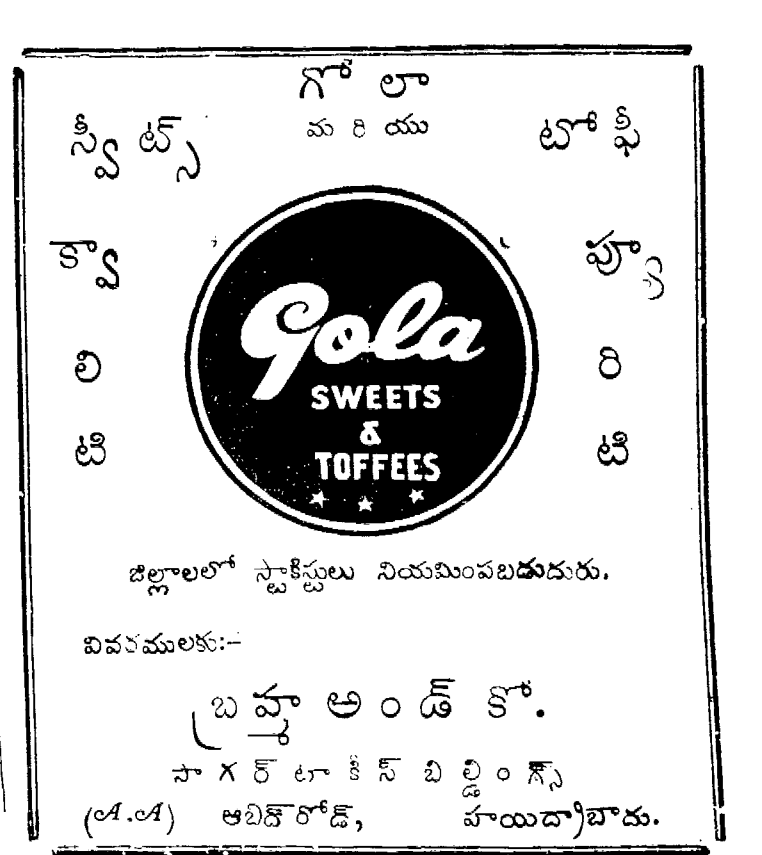 గోలా
స్వీట్స్ మరియు టోఫీ
క్వా ప్యూ
Gola
లి రి
SWEETS
&
టి టి
TOFFEES
జిల్లాలలో స్టాకిస్టులు నియమింపబడుదురు.
వివరములకు:-
బ్రహ్మ అండ్ కో.
సాగర్ టాకీస్ బిల్డింగ్స్
(A.A) ఆబిద్ రోడ్, హయిద్రాబాదు.